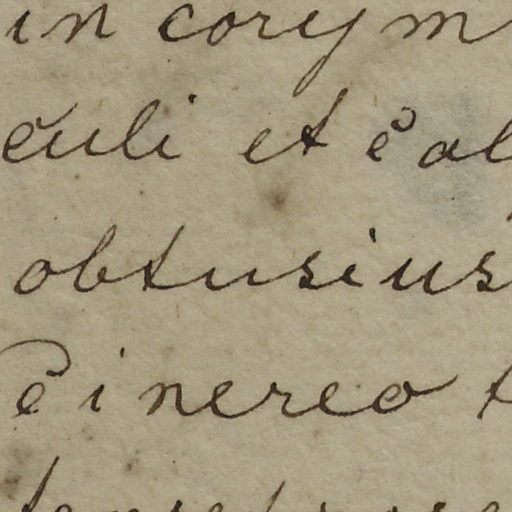 in corym
culi et cal
obtusius
Cinereo t